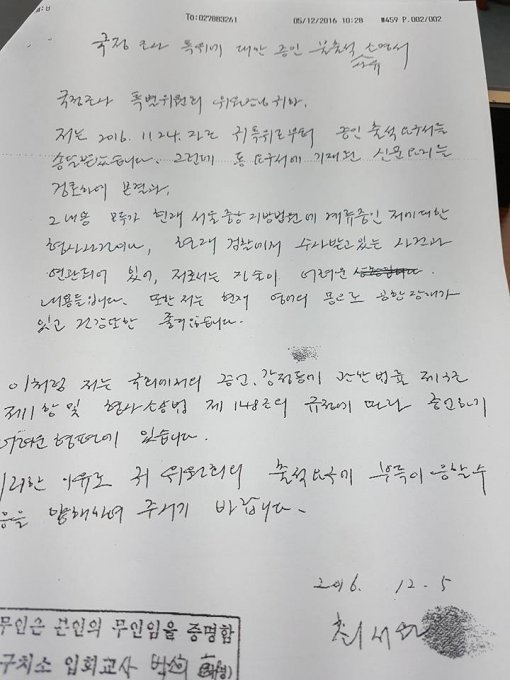 To:027883261 05/12/2016 10:28 #459 P.002/002
국정조사 특위에 대한 증인 불출석 사유 소명서
국정조사 특별위원회 위원장님 귀하.
저는 2016. 11. 24.자로 귀 특위로부터 증인 출석요구서를
송달받았습니다. 그런데 동 요구서에 기재된 신문요지를
검토하여 본 결과,
그 내용 모두가 현재 서울중앙지방법원에 계류중인 저에 대한
형사사건이나, 현재 검찰에서 수사받고 있는 사건과
연관되어 있어, 저로서는 진술이 어려운
내용들입니다. 또한 저는 현재 영어의 몸으로 공황장애가
있고 건강 또한 좋지 않습니다.
이처럼 저는 국회에서의 증언, 감정등에 관한 법률 제3조
제1항 및 형사소송법 제148조의 규정에 따라 증언하기
어려운 형편에 있습니다.
이러한 이유로 귀 위원회의 출석요구에 부득이 응할 수
음을 양해하여 주시기 바랍니다.
2016. 12. 5
최서원
무인은 본인의 무인임을 증명함
구치소 입회교사